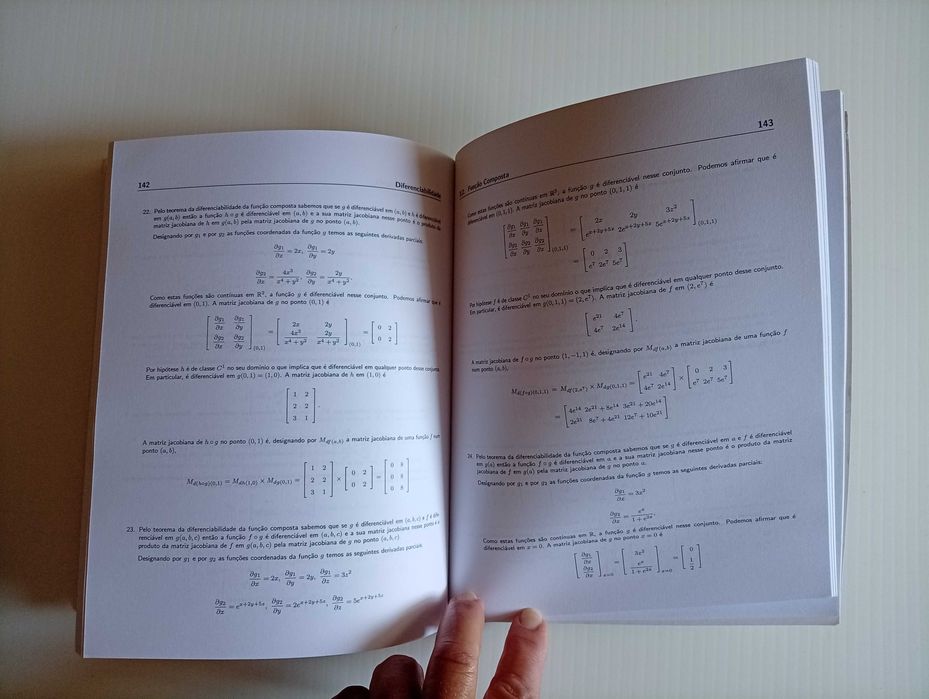 142
Diferenciabilidade
22. Pelo teorema da diferenciabilidade da função composta sabemos que se g é diferenciável em (a, b) e h é diferenciável
em g(a, b) então a função h ∘ g é diferenciável em (a, b) e a sua matriz jacobiana nesse ponto é o produto da
matriz jacobiana de h em g(a, b) pela matriz jacobiana de g no ponto (a, b).
Designando por g1 e por g2 as funções coordenadas da função g temos as seguintes derivadas parciais.
∂g1/∂x = 2x, ∂g1/∂y = 2y
∂g2/∂x = 4x³/(x⁴ + y²), ∂g2/∂y = 2y/(x⁴ + y²).
Como estas funções são contínuas em ℝ², a função g é diferenciável nesse conjunto. Podemos afirmar que é
diferenciável em (0, 1). A matriz jacobiana de g no ponto (0, 1) é
[∂g1/∂x ∂g1/∂y; ∂g2/∂x ∂g2/∂y](0,1) = [2x 2y; 4x³/(x⁴ + y²) 2y/(x⁴ + y²)](0,1) = [0 2; 0 2]
Por hipótese h é de classe C¹ no seu domínio o que implica que é diferenciável em qualquer ponto desse conjunto.
Em particular, é diferenciável em g(0, 1) = (1, 0). A matriz jacobiana de h em (1, 0) é
[1 2; 2 2; 3 1].
A matriz jacobiana de h ∘ g no ponto (0, 1) é, designando por Mdf(a,b) a matriz jacobiana de uma função f num
ponto (a, b),
Md(h∘g)(0,1) = Mdh(1,0) × Mdg(0,1) = [1 2; 2 2; 3 1] × [0 2; 0 2] = [0 8; 0 8; 0 8]
23. Pelo teorema da diferenciabilidade da função composta sabemos que se g é diferenciável em (a, b, c) e f é dife-
renciável em g(a, b, c) então a função f ∘ g é diferenciável em (a, b, c) e a sua matriz jacobiana nesse ponto é o
produto da matriz jacobiana de f em g(a, b, c) pela matriz jacobiana de g no ponto (a, b, c)
Designando por g1 e por g2 as funções coordenadas da função g temos as seguintes derivadas parciais.
∂g1/∂x = 2x, ∂g1/∂y = 2y, ∂g1/∂z = 3z²
∂g2/∂x = e^(x+2y+5z), ∂g2/∂y = 2e^(x+2y+5z), ∂g2/∂z = 5e^(x+2y+5z)
Função Composta
143
Como estas funções são contínuas em ℝ³, a função g é diferenciável nesse conjunto. Podemos afirmar que é
diferenciável em (0, 1, 1). A matriz jacobiana de g no ponto (0, 1, 1) é
[∂g1/∂x ∂g1/∂y ∂g1/∂z; ∂g2/∂x ∂g2/∂y ∂g2/∂z](0,1,1) = [2x 2y 3z²; e^(x+2y+5z) 2e^(x+2y+5z) 5e^(x+2y+5z)](0,1,1)
= [0 2 3; e⁷ 2e⁷ 5e⁷]
Por hipótese f é de classe C¹ no seu domínio o que implica que é diferenciável em qualquer ponto desse conjunto.
Em particular, é diferenciável em g(0, 1, 1) = (2, e⁷). A matriz jacobiana de f em (2, e⁷) é
[e²¹ 4e⁷; 4e⁷ 2e¹⁴]
A matriz jacobiana de f ∘ g no ponto (1, −1, 1) é, designando por Mdf(a,b) a matriz jacobiana de uma função f
num ponto (a, b),
Md(f∘g)(0,1,1) = Mdf(2,e⁷) × Mdg(0,1,1) = [e²¹ 4e⁷; 4e⁷ 2e¹⁴] × [0 2 3; e⁷ 2e⁷ 5e⁷]
= [4e¹⁴ 2e²¹ + 8e¹⁴ 3e²¹ + 20e¹⁴; 2e²¹ 8e⁷ + 4e²¹ 12e⁷ + 10e²¹]
24. Pelo teorema da diferenciabilidade da função composta sabemos que se g é diferenciável em a e f é diferenciável
em g(a) então a função f ∘ g é diferenciável em a e a sua matriz jacobiana nesse ponto é o produto da matriz
jacobiana de f em g(a) pela matriz jacobiana de g no ponto a.
Designando por g1 e por g2 as funções coordenadas da função g temos as seguintes derivadas parciais:
∂g1/∂x = 3x²
Como estas funções são contínuas em ℝ, a função g é diferenciável nesse conjunto. Podemos afirmar que é
diferenciável em x = 0. A matriz jacobiana de g no ponto x = 0 é